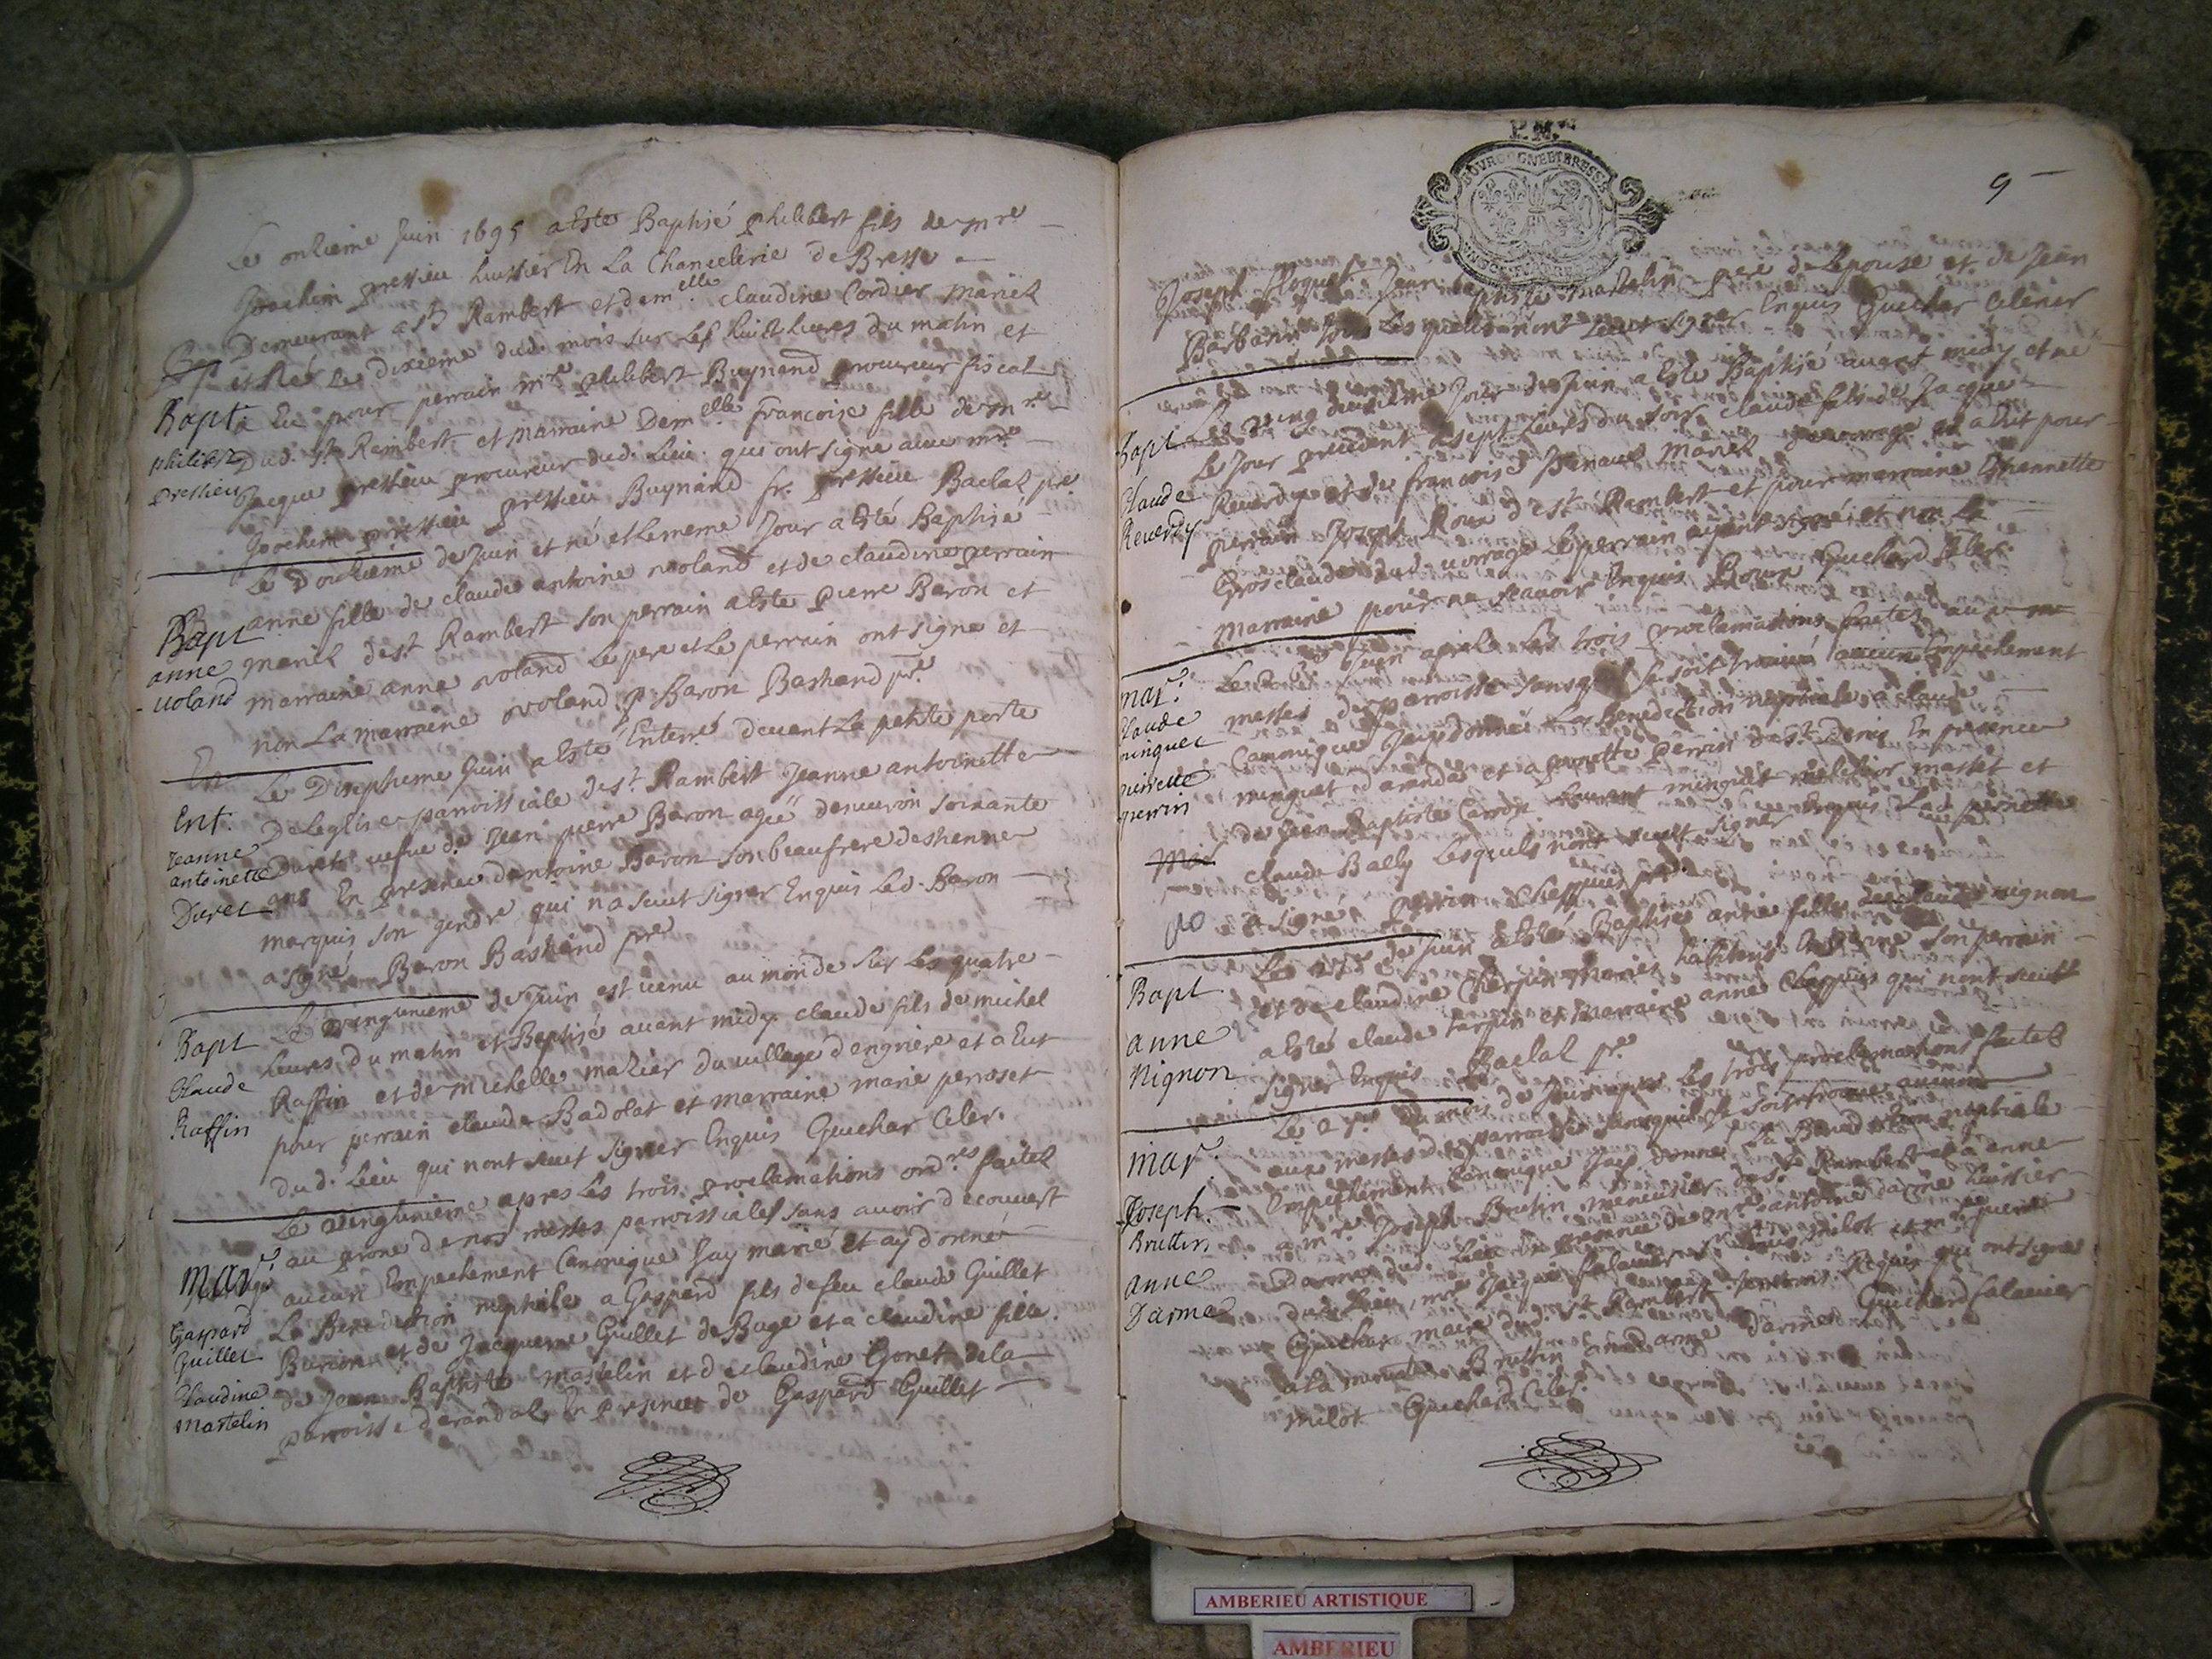 Le onzieme Juin 1695 a Esté Baptisé philibert fils de mre
Joachim pressieu huissier En La Chancelerie de Bresse
Demeurant a st Rambert et dem.elle claudine Cordier Mariez
et Né Le dixieme dud. mois sur Les huict heures du matin et
a Eu pour perrain mre philibert Buynand procureur fiscal
Dud. st Rambert et marraine Dem.elle francoise fille de mre
Jacque pressieu procureur dud. Lieu qui ont signe avec mre
Joachim pressieu pressieu Buynand fr. pressieu Baclaz pre.
Bapt
philibert
pressieu
Le Douzieme de Juin et né et Le meme Jour a Esté Baptisé
anne fille de claude antoine uvoland et de claudine perrain
mariez de st Rambert son perrain a Esté pierre Baron et
marraine anne uvoland Le pere et Le perrain ont signe et
non La marraine uvoland p. Baron Bashand pre.
Bapt
anne
uoland
En
Le Dixseptieme Juin a Esté Enterré devant La petite porte
De Leglise paroissiale de st. Rambert Jeanne antoinette
Duret vefue de Jean pierre Baron agée denuiron soixante
ans En presence dantoine Baron son beaufrere destienne
marquis son gendre qui na sceut signer Enquis Led. Baron
a signé Baron Bashand pre
Ent.
Jeanne
antoinette
Duret
Le vingtunieme de Juin est venu au monde sur Les quatre
heures du matin et Baptisé avant midy claude fils de michel
Raffin et de michelle mazier du village d engriere et a Eut
pour perrain claude Badolat et marraine marie perroset
dud. Lieu qui nont sceut signer Enquis Guichar Cler.
Bapt
Claude
Raffin
Le vingtunieme apres Les trois proclamations ord.res faites
au prone de nos messes paroissiales sans avoir decouvert
aucun Empechement Canonique Jay marié et ay donné
La Benediction nuptiale a Gaspard fils de feu claude Guillet
Burin et de Jacqueme Guillet de Buge et a claudine fille
de Jean Baptiste Martelin et de claudine Gonet de la
paroisse derandaz En presence de Gaspard Guillet
Mar.
Gaspard
Guillet
Claudine
Martelin
P. M.
BOURGOGNE ET BRESSE
9
Joseph Floquet Jean baptiste Martelin pere de Lepouse et de Jean
Barbarin tous Lesquels nont sceut signer Enquis Guichar Cler
Les vingt deuxieme Jour de Juin a Esté Baptisé avant midy et né
Le Jour precedent a sept heures du soir claude fils de Jacque
Reverdy et de francoise Mariez a Eut pour
perrain Joseph Roux de st Rambert et pour marraine Thiennette
Grosclaude dud. Le perrain ayant signé et non La
marraine pour ne scavoir Enquis Roux Guichard Cler.
Bapt
Claude
Reverdy
Le Juin apres Les trois proclamations faites aux
messes de paroisse sans quil se soit trouvé aucun Empechement
Canonique Jay donné La Benediction nuptiale a claude
minguet daranda et a pernette perrin de st. Denis En presence
de Jean Baptiste Carron Laurent minguet melchior masset et
claude Bally Lesquels nont sceut signer Enquis Lad. pernette
a signé perrin
mar.
Claude
minguet
perrin
Le de Juin a Esté Baptisé anne fille de claude nignon
et de claudine Cherpin Mariez habitans son perrain
a Esté claude tarpin et Marraine anne qui nont sceut
signer Enquis Baclaz pre
Bapt
anne
Nignon
Le du mois de Juin apres Les trois proclamations faites
aux messes de paroisse sans quil se soit trouvé aucun
Empechement Canonique Jay donné La Benediction nuptiale
a mre. Joseph Bruttin menuisier de st. Rambert et a anne
Darme dud. Lieu En presence de mre antoine darme huissier
dud. Lieu, mre Jacque falavier milot et mre pierre
Guichar maire dud. st Rambert Requis qui ont signé
a La minute Bruttin darme darme Guichard falavier
milot Guichard Cler.
mar.
Joseph
Bruttin
anne
Darme
AMBERIEU ARTISTIQUE
AMBERIEU